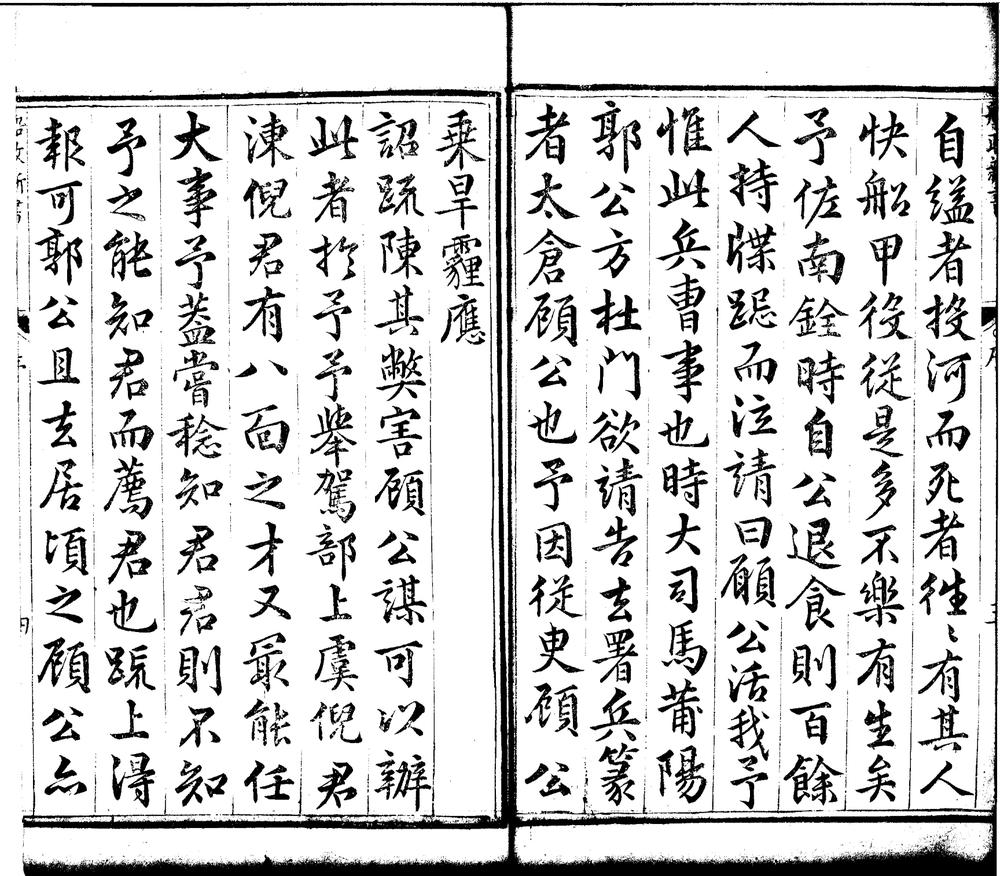 自縊者投河而死者徃〻有其人
快船甲役從是多不樂有生矣
予佐南銓時自公退食則百餘
人持牒跽而泣請曰願公活我予
惟此兵曹事也時大司馬莆陽
郭公方杜門欲請告去署兵篆
者太倉顧公也予因從臾顧公
乗旱霾應
詔䟽陳其獘害顧公謀可以辦
此者扵予予舉駕部上虞倪君
涷倪君有八面之才又冣能任
大事予蓋嘗稔知君君則不知
予之能知君而薦君也䟽上淂
報可郭公且去居頃之顧公亦